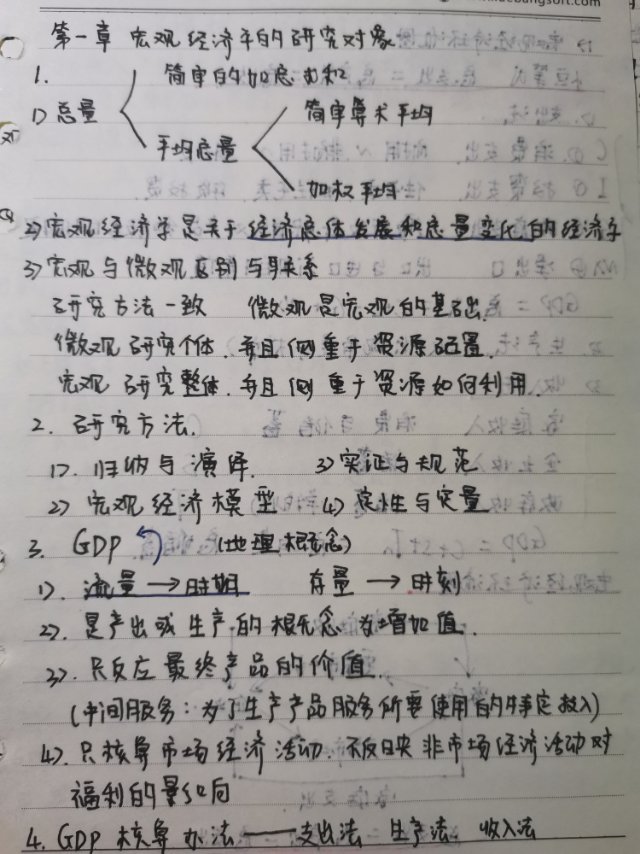 第一章 宏观经济学的研究对象
1. 简单的加总求和
1) 总量 简单算术平均
平均总量
加权平均
2) 宏观经济学是关于经济总体发展和总量变化的经济学
3) 宏观与微观区别与联系
研究方法一致 微观是宏观的基础.
微观研究个体.并且侧重于资源配置.
宏观研究整体.并且侧重于资源如何利用.
2. 研究方法.
1). 归纳与演绎. 3) 实证与规范
2) 宏观经济模型 4) 定性与定量
3. GDP (地理概念)
1). 流量→时期 存量→时刻
2). 是产出或生产的概念 为增加值.
3). 只反应最终产品的价值.
(中间服务:为了生产产品服务所要使用的特定投入)
4). 只核算市场经济活动.不反映非市场经济活动对
福利的影响
4. GDP 核算办法——支出法 生产法 收入法